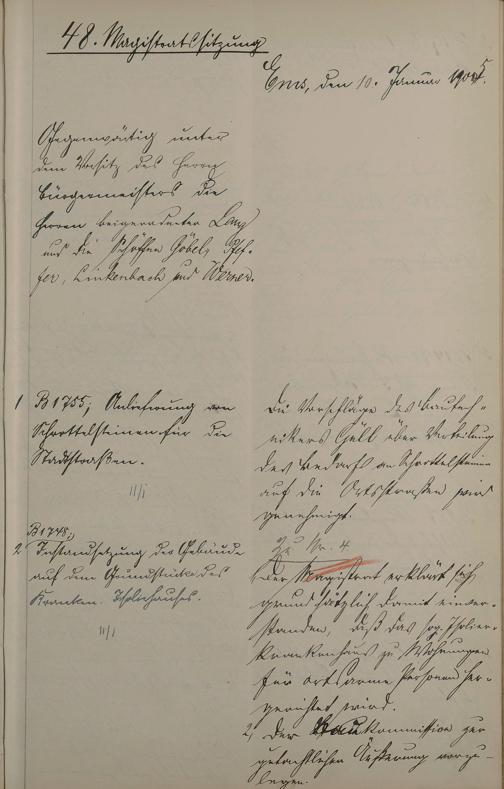 48. Magistratssitzung
Ems, den 10. Januar 1905.
Gegenwärtig unter
dem Vorsitz des Herrn
Bürgermeisters die
Herren beigeordneter Lang
und die Schöffen Göbel, Pfef-
fer, Linkenbach und Werner.
1 B 1755; Anlieferung von
Schrottelsteinen für die
Stadtstraßen.
11/1
Die Vorschläge des Bautech-
nikers Güll über Verteilung
des Bedarfs an Schrottelsteine
auf die Ortsstraßen wird
genehmigt.
B 1748;
2 Instandsetzung der Gebäude
auf dem Grundstücke des
Kranken Isolirhauses.
11/1
Zu Nr. 4
Der Magistrat erklärt sich
grundsätzlich damit einver-
standen, daß das sog. Isolier-
krankenhaus zu Wohnungen
für ortsarme Personen her-
gerichtet wird.
2, Der Baukommission zur
gutachtlichen Äußerung vorzu-
legen.